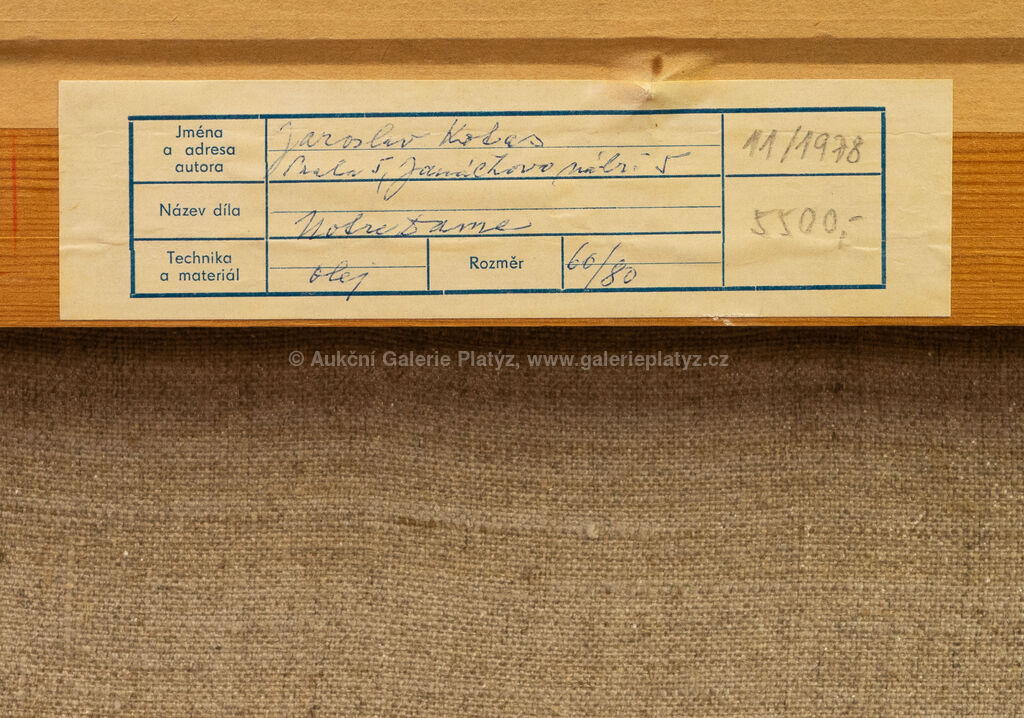 Jména
a adresa
autora
Jaroslav Kotas
Praha 5, Janáčkovo nábř. 5
11/1978
Název díla
Notre Dame
5500,-
Technika
a materiál
olej
Rozměr
60/80
© Aukční Galerie Platýz, www.galerieplatyz.cz